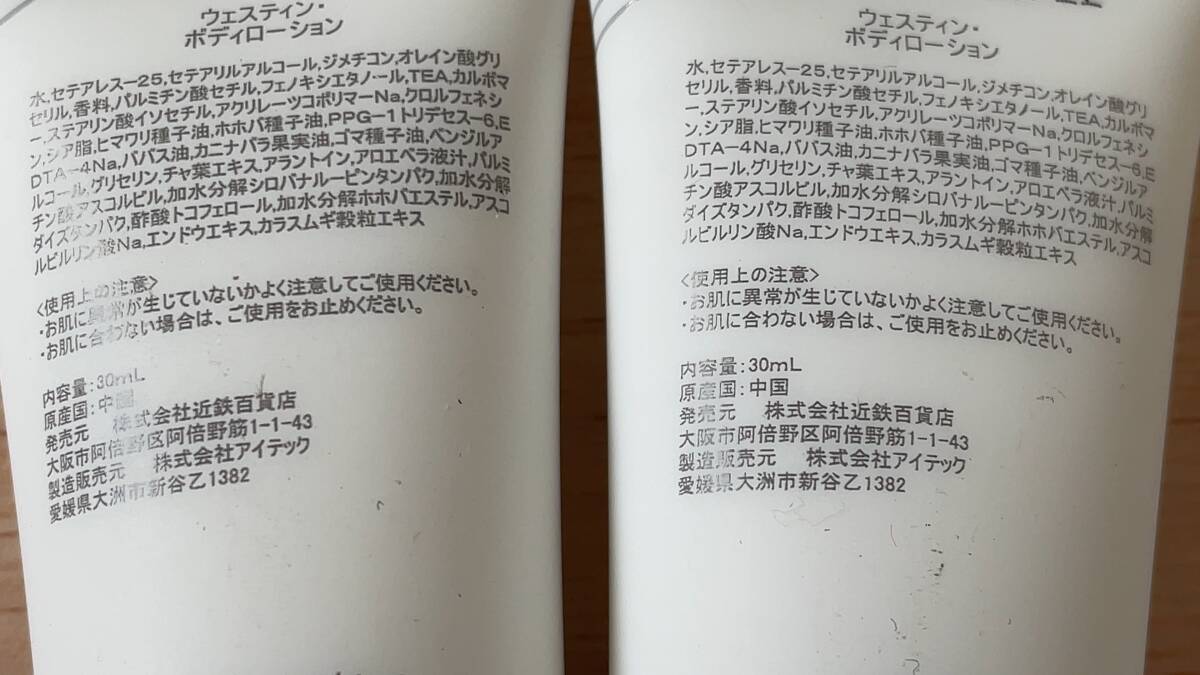 ウェスティン・
ボディローション
水,セテアレス-25,セテアリルアルコール,ジメチコン,オレイン酸グリ
セリル,香料,パルミチン酸セチル,フェノキシエタノール,TEA,カルボマ
ー,ステアリン酸イソセチル,アクリレーツコポリマーNa,クロルフェネシ
ン,シア脂,ヒマワリ種子油,ホホバ種子油,PPG-1トリデセス-6,E
DTA-4Na,ババス油,カニナバラ果実油,ゴマ種子油,ベンジルア
ルコール,グリセリン,チャ葉エキス,アラントイン,アロエベラ液汁,パルミ
チン酸アスコルビル,加水分解シロバナルーピンタンパク,加水分解
ダイズタンパク,酢酸トコフェロール,加水分解ホホバエステル,アスコ
ルビルリン酸Na,エンドウエキス,カラスムギ穀粒エキス
<使用上の注意>
・お肌に異常が生じていないかよく注意してご使用ください。
・お肌に合わない場合は、ご使用をお止めください。
内容量:30mL
原産国:中国
発売元 株式会社近鉄百貨店
大阪市阿倍野区阿倍野筋1-1-43
製造販売元 株式会社アイテック
愛媛県大洲市新谷乙1382
ウェスティン・
ボディローション
水,セテアレス-25,セテアリルアルコール,ジメチコン,オレイン酸グリ
セリル,香料,パルミチン酸セチル,フェノキシエタノール,TEA,カルボマ
ー,ステアリン酸イソセチル,アクリレーツコポリマーNa,クロルフェネシ
ン,シア脂,ヒマワリ種子油,ホホバ種子油,PPG-1トリデセス-6,E
DTA-4Na,ババス油,カニナバラ果実油,ゴマ種子油,ベンジルア
ルコール,グリセリン,チャ葉エキス,アラントイン,アロエベラ液汁,パルミ
チン酸アスコルビル,加水分解シロバナルーピンタンパク,加水分解
ダイズタンパク,酢酸トコフェロール,加水分解ホホバエステル,アスコ
ルビルリン酸Na,エンドウエキス,カラスムギ穀粒エキス
<使用上の注意>
・お肌に異常が生じていないかよく注意してご使用ください。
・お肌に合わない場合は、ご使用をお止めください。
内容量:30mL
原産国:中国
発売元 株式会社近鉄百貨店
大阪市阿倍野区阿倍野筋1-1-43
製造販売元 株式会社アイテック
愛媛県大洲市新谷乙1382